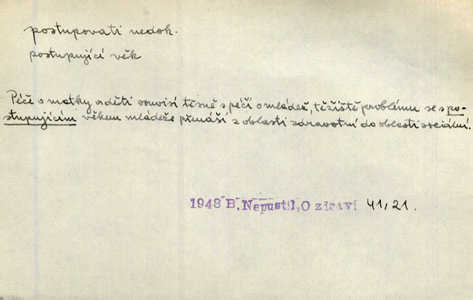 postupovati nedok.
postupující věk
Péče o matky a děti souvisí těsně s péčí o mládež, těžiště problému se s po-
stupujícím věkem mládeže přenáší z oblasti zdravotní do oblasti sociální.
1948 B. Nepustil, O zdraví 41, 21.